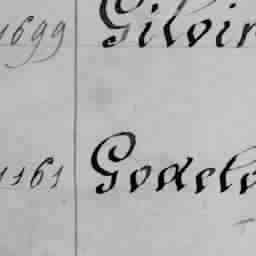 1699 Giloin
1161 Godelo